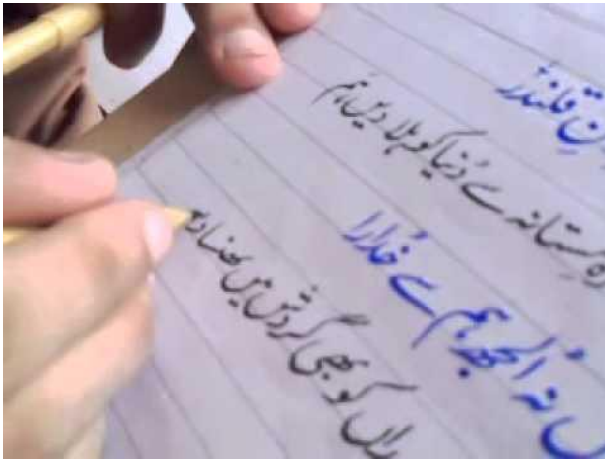 قلندرؒ
مستانہ سے دُنیا کو ہلا دیں ہم
نہ اُلجھ ہم سے خُدارا
کو بھی گردش میں پھنسا